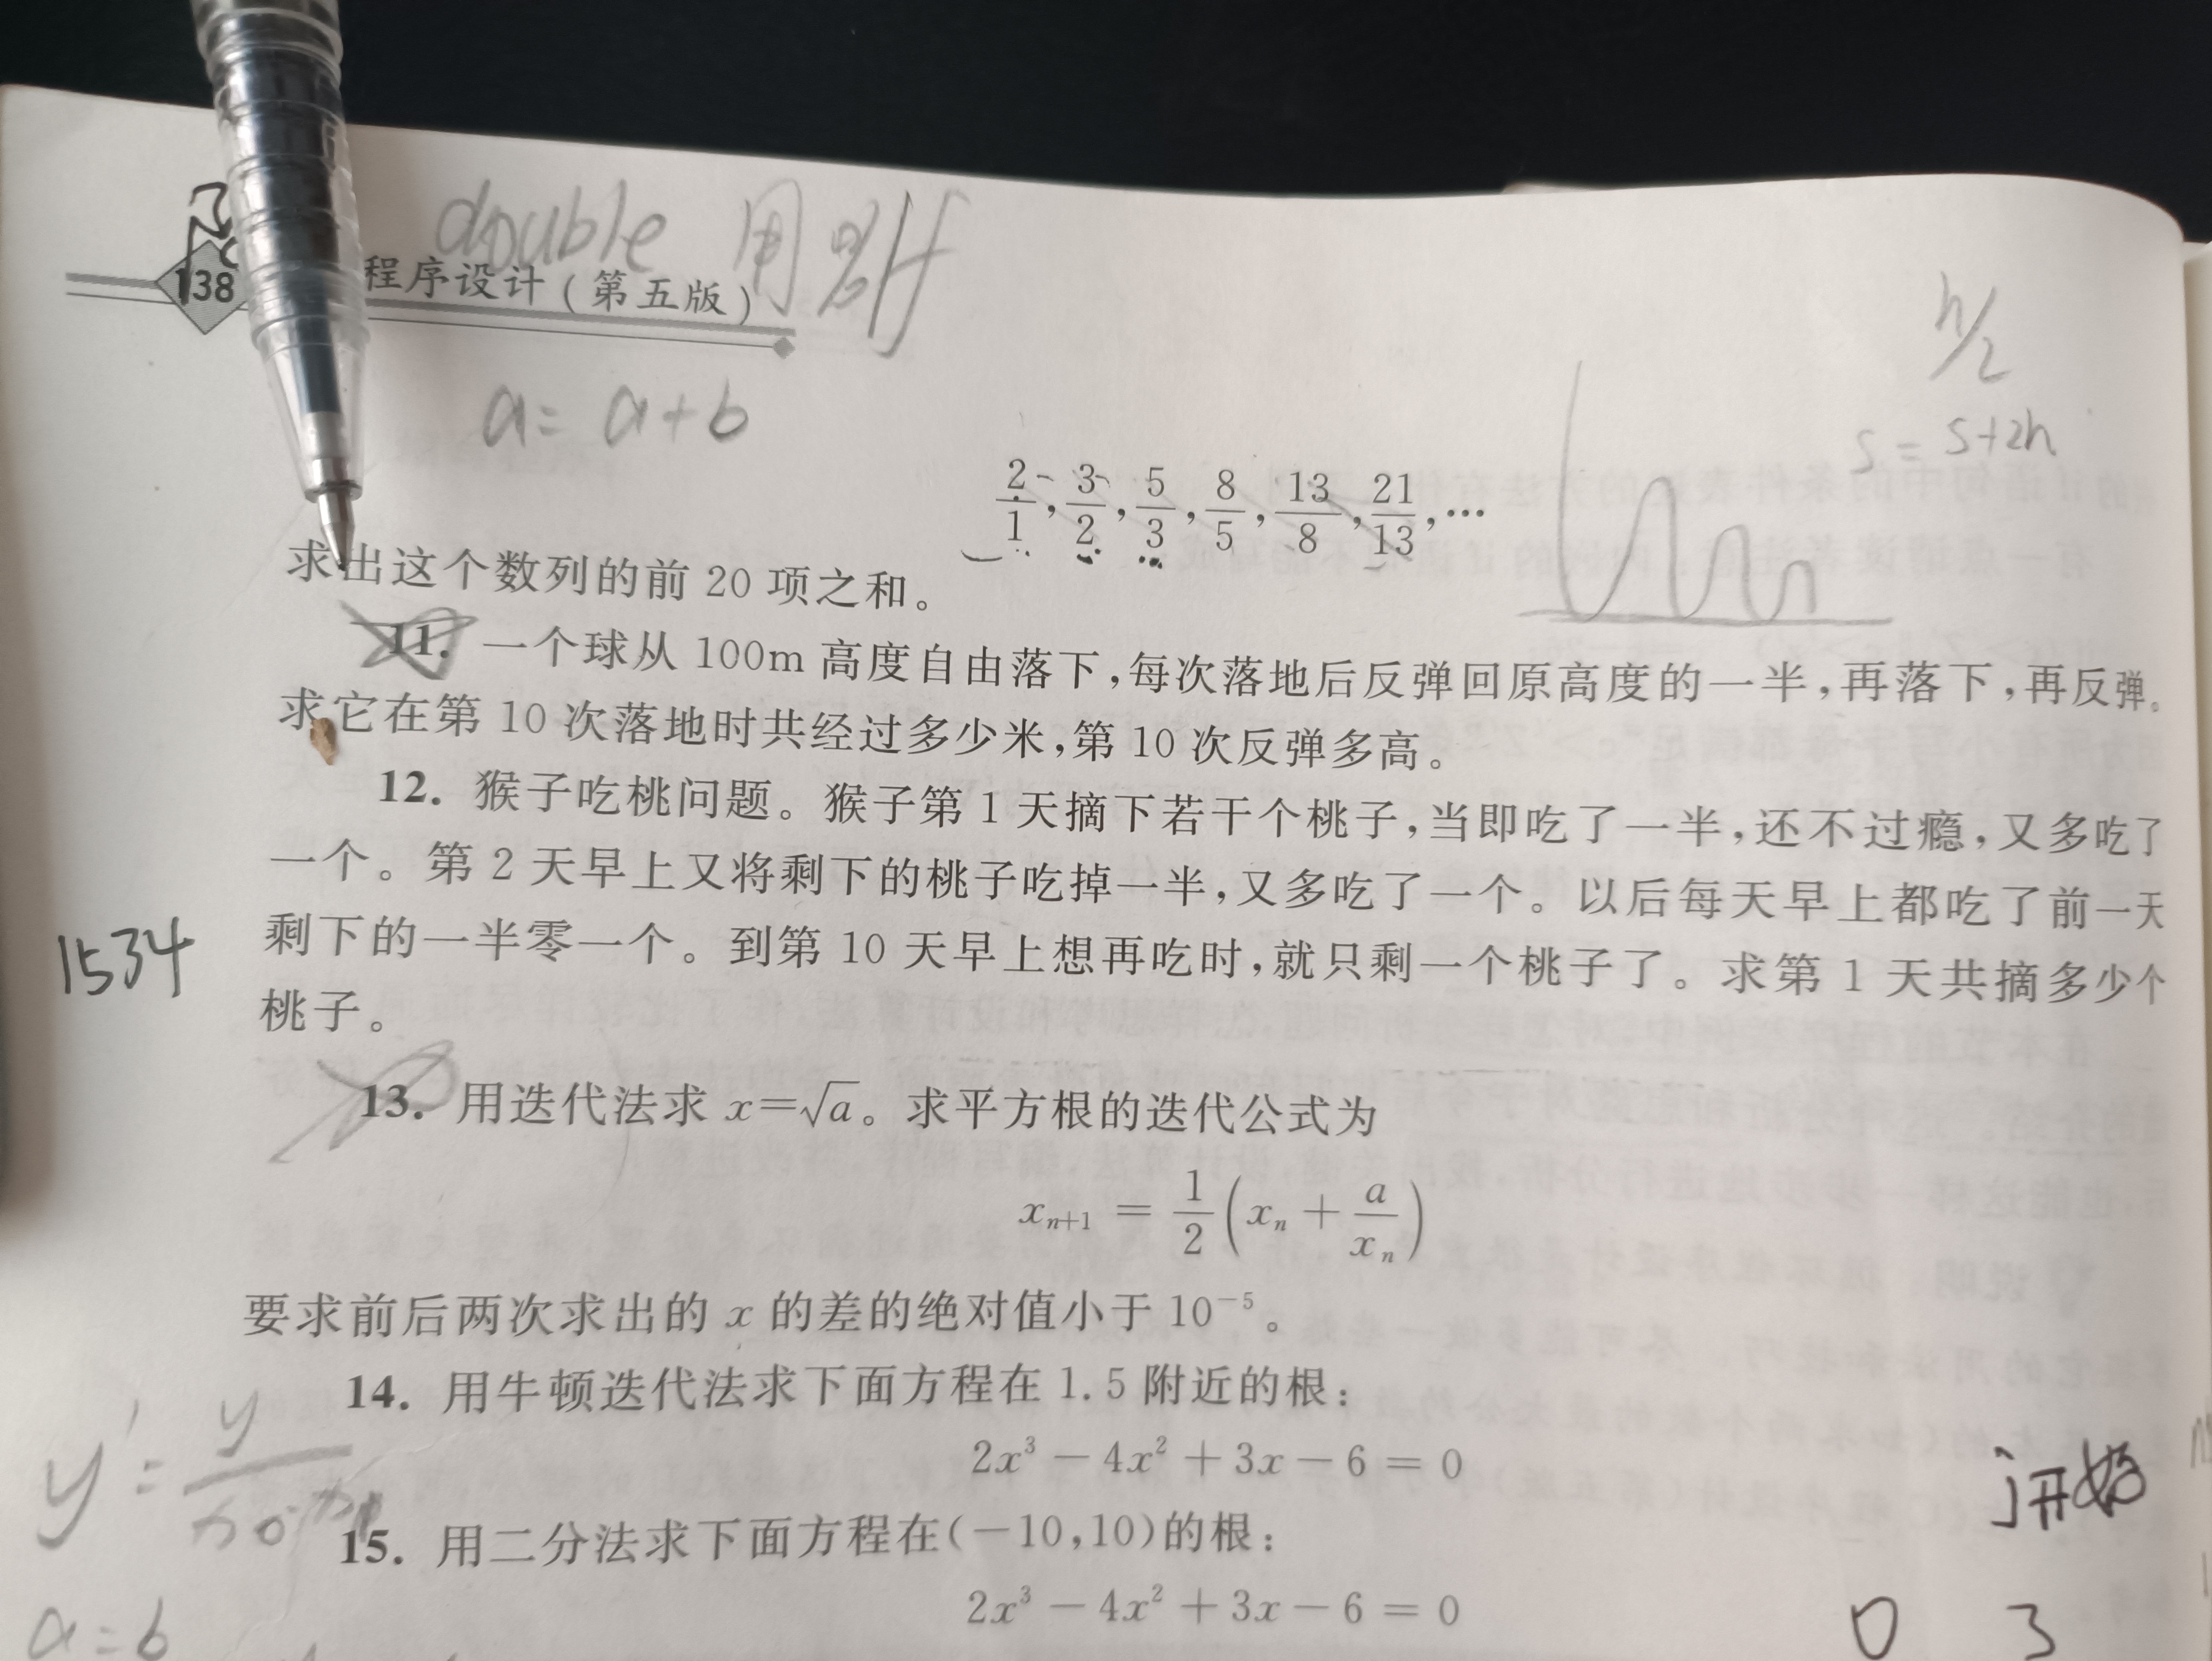 double 用 lf
138 程序设计(第五版)
h/2
a= a+b
s = s+2h
2/1, 3/2, 5/3, 8/5, 13/8, 21/13, …
求出这个数列的前 20 项之和。
11. 一个球从 100m 高度自由落下,每次落地后反弹回原高度的一半,再落下,再反弹。
求它在第 10 次落地时共经过多少米,第 10 次反弹多高。
12. 猴子吃桃问题。猴子第 1 天摘下若干个桃子,当即吃了一半,还不过瘾,又多吃了
一个。第 2 天早上又将剩下的桃子吃掉一半,又多吃了一个。以后每天早上都吃了前一天
剩下的一半零一个。到第 10 天早上想再吃时,就只剩一个桃子了。求第 1 天共摘多少个
1534
桃子。
13. 用迭代法求 x=√a。求平方根的迭代公式为
xₙ₊₁ = 1/2(xₙ + a/xₙ)
要求前后两次求出的 x 的差的绝对值小于 10⁻⁵。
14. 用牛顿迭代法求下面方程在 1.5 附近的根:
2x³ − 4x² + 3x − 6 = 0
j开始
15. 用二分法求下面方程在(−10,10)的根:
2x³ − 4x² + 3x − 6 = 0
a=b
0 3